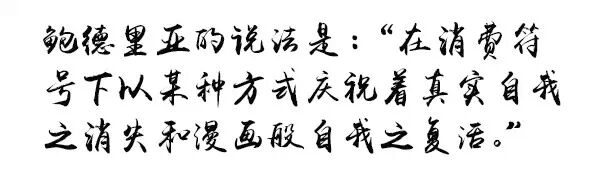 鲍德里亚的说法是：“在消费符
号下以某种方式庆祝着真实自我
之消失和漫画般自我之复活。”